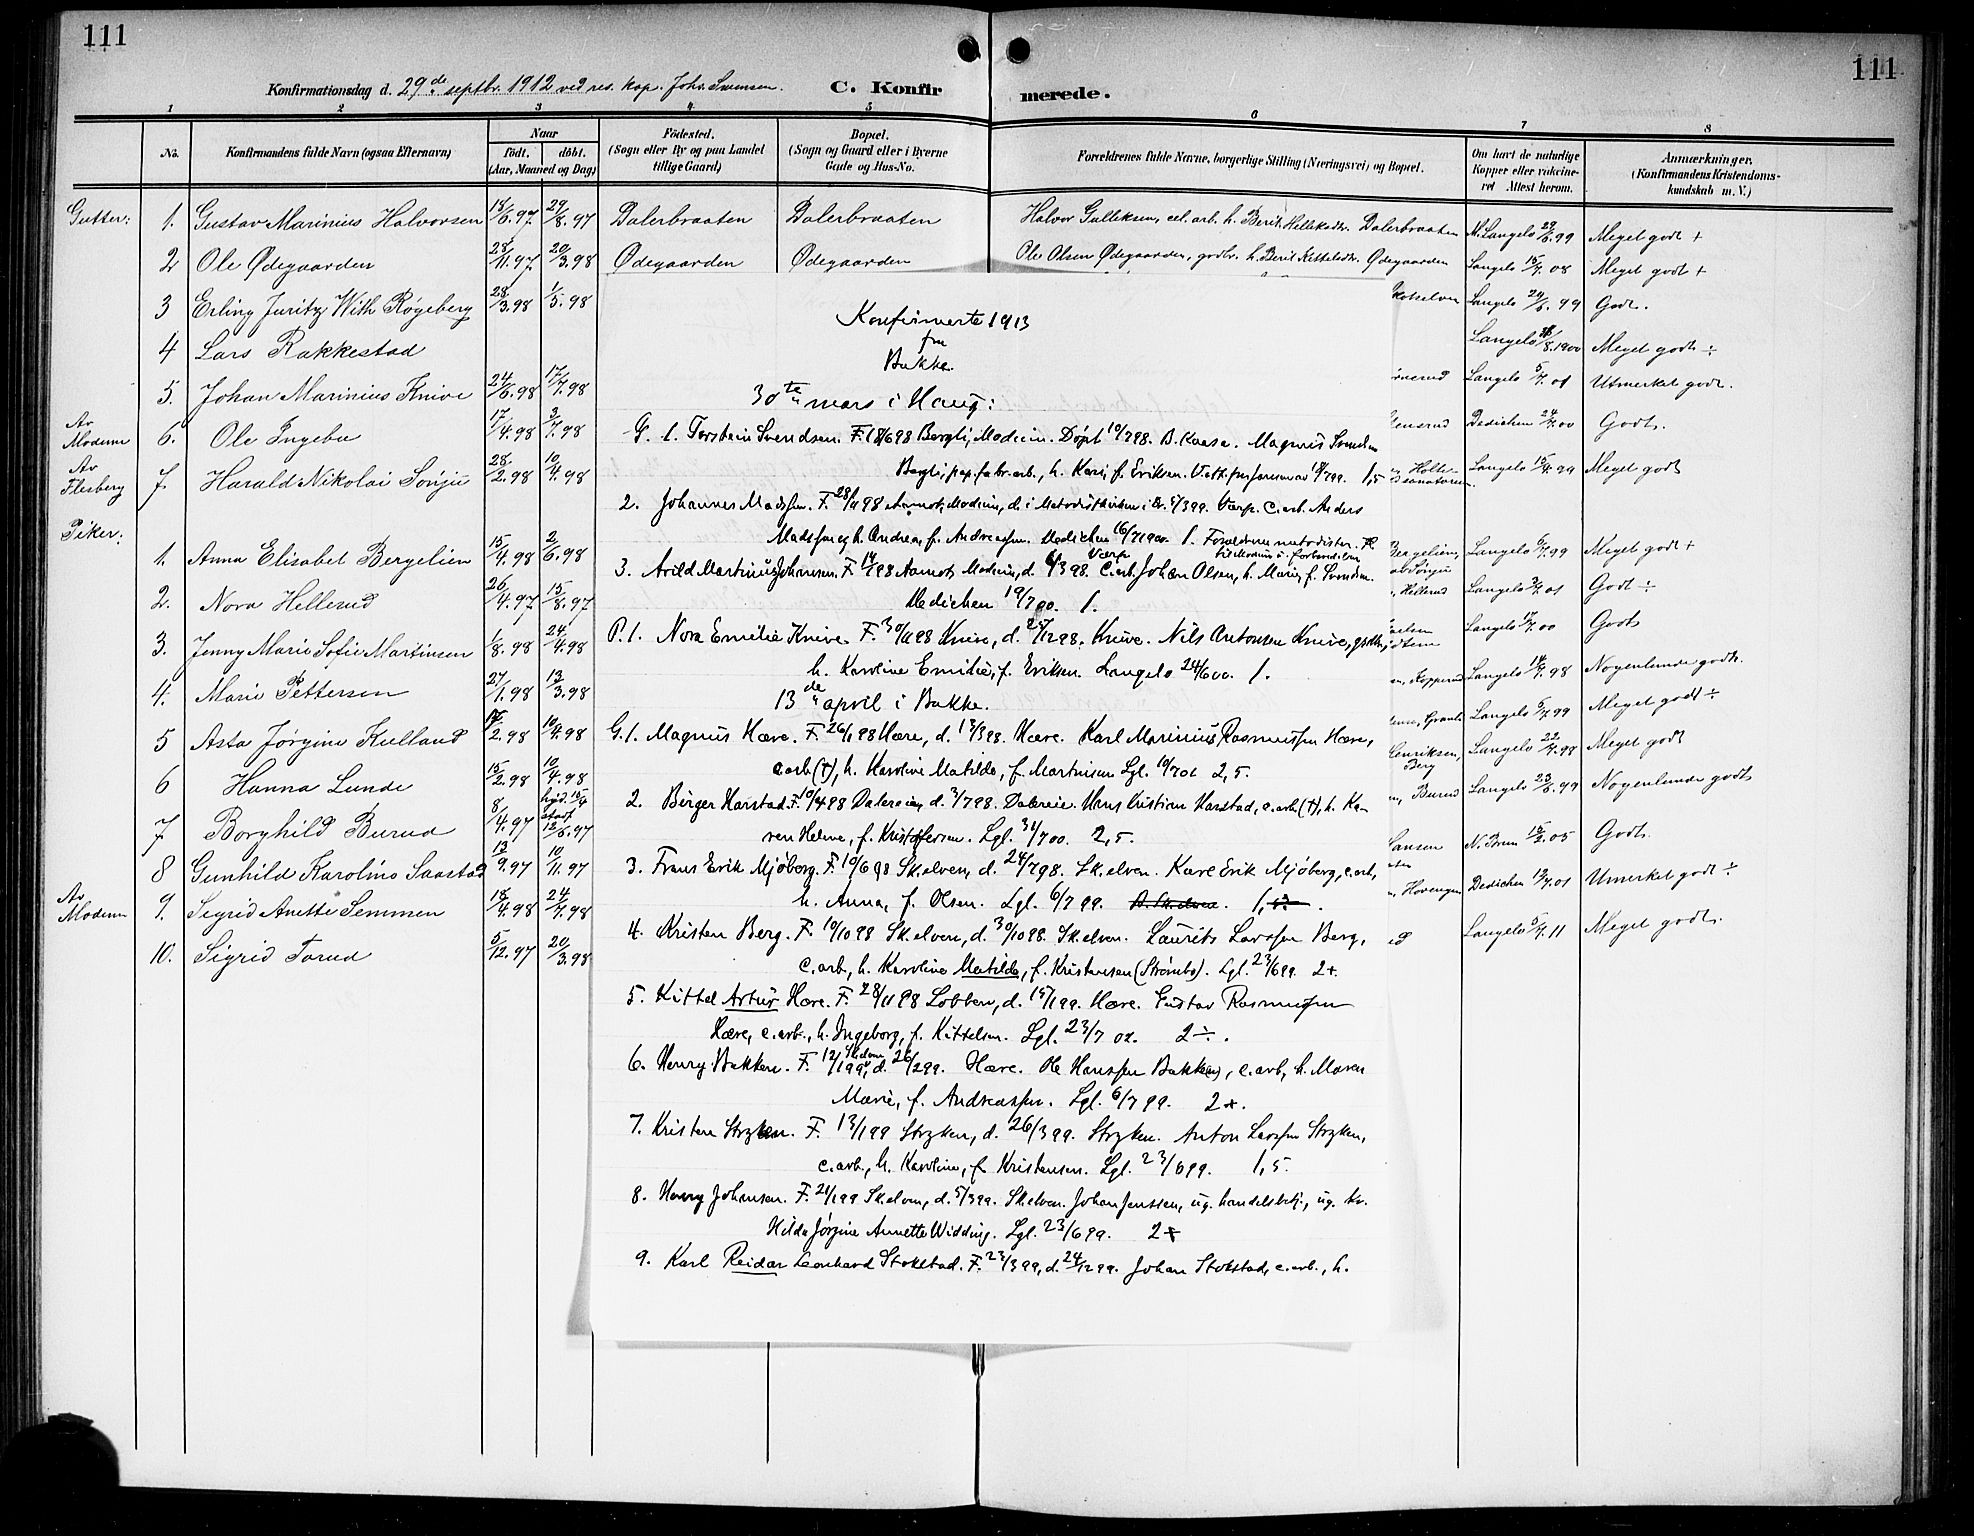 111
111
Konfirmationsdag d. 29de septbr. 1912 ved res. kap. Johs. Svensen.
C. Konfirmerede.
1 2 3 4 5 6 7 8
No.
Konfirmandens fulde Navn (ogsaa Efternavn)
Naar
født. døbt.
(Aar, Maaned og Dag)
Födested.
(Sogn eller By og paa Landet
tillige Gaard)
Bopæl.
(Sogn og Gaard eller i Byerne
Gade og Hus-No.
Forældrenes fulde Navne, borgerlige Stilling (Næringsvei) og Bopæl.
Om havt de naturlige
Kopper eller vakcine-
ret Attest herom.
Anmærkninger.
(Konfirmandens Kristendoms-
kundskab m. V.)
Gutter:
1. Gustav Marinius Halvorsen 15/6.97 29/8.97 Dalerbraaten Dalerbraaten Halvor Gulleksen, cel. arb. h. Berit Helleksdtr. Dalerbraaten M. Langelo 29/6.99 Meget godt +
2 Ole Ødegaarden 28/11.97 20/3.98 Ødegaarden Ødegaarden Ole Olsen Ødegaarden, grdbr. h. Berit Kettelsdtr. Ødegaarden Langelo 15/7.08 Meget godt +
3 Erling Juritz With Røgeberg 28/3.98 1/5.98 Langelo 29/6.99 Godt.
4 Lars Rakkestad Langelo 8.1900 Meget godt ÷
5. Johan Marinius Knive 24/6.98 17/7.98 Langelo 5/7.01 Utmerket godt.
Av Modum
6. Ole Ingebu 17/4.98 3/7.98 Dedichen 24/7.00 Godt.
Av Flesberg
7. Harald Nikolai Sønju 28/2.98 10/4.98 Langelo 15/4.99 Meget godt
Piker:
1. Anna Elisabet Bergelien 15/4.98 2/6.98 Bergelien, Langelo 6/7.99 Meget godt +
2. Nora Hellerud 26/4.97 15/8.97 Hellerud Langelo 3/7.01 Godt ÷
3. Jenny Marie Sofie Martinsen 1/8.98 24/4.98 Langelo 17/7.00 Godt
4. Marie Pettersen 27/1.98 13/3.98 Kopperud Langelo 14/7.98 Nogenlunde godt.
5 Asta Jørgine Kulland 17/2.98 10/4.98 Langelo 5/7.99 Meget godt ÷
6 Hanna Lunde 15/2.98 10/4.98 Henriksen, Berg Langelo 22/7.98 Meget godt
7 Borghild Burud 8/4.97 hjd. 15/4 stadf. 12/6.97 Burud Langelo 23/6.99 Nogenlunde godt
8 Gunhild Karoline Saastad 13/9.97 10/11.97 Hansen N. Brun 15/2.05 Godt.
Av Modum
9. Sigrid Anette Semmen 18/4.98 24/7.98 Hovengen Dedichen 12/7.01 Utmerket godt ÷
10. Sigrid Torud 5/12.97 20/3.98 Langelo 5/7.11 Meget godt.
Konfirmerte 1913
fra
Bakke.
30te mars i Haug:
G. 1. Torstein Svendsen. F. 18/6 98 Bergli, Modum. Døpt 10/7 98. B. Kaasa. Magnus Svendsen
Bergli, pap.fabr.arb., h. Karin, f. Eriksen. 1,5
2. Johannes Madssen. F. 28/11 98 Aamot, Modum, d. i Metodistkirken i Dr. 5/3 99. Værp. C.arb. Anders
Madssen og h. Andrea, f. Andreassen. Dedichen 16/7 1900. 1. Forældrene metodister.
3. Arild Martinius Johansen. F. 14/1 98 Aamot, Modum, d. 6/3 98. Værp C.arb. Johan Olsen, h. Marie, f. Svendsen.
Dedichen 19/7 00. 1.
P. 1. Nora Emilie Knive. F. 30/11 98 Knive, d. 25/12 98. Knive. Nils Antonsen Knive, grdbr.,
h. Karoline Emilie, f. Eriksen. Langelo 24/6 00. 1.
13de april i Bakke.
G. 1. Magnus Hære. F. 26/1 98 Hære, d. 13/3 98. Hære. Karl Marinius Rasmussen Hære,
c.arb (†), h. Karoline Matilde, f. Martinsen Lgl. 19/7 01 2,5.
2. Birger Harstad. F. 10/4 98 Daleroia, d. 3/7 98. Daleroie. Hans Kristian Harstad, c.arb (†), h. Ka-
ren Helene, f. Kristoffersen. Lgl. 31/7 00. 2,5.
3. Frans Erik Mjöberg. F. 10/6 98 Skelven, d. 24/7 98. Skelven. Kare Erik Mjöberg, c.arb,
h. Anna, f. Olsen. Lgl. 6/7 99. 1,
4. Kristen Berg. F. 19/10 98 Skelven, d. 30/10 98. Skelven. Laurits Larssen Berg,
C.arb, h. Karoline Matilde, f. Kristensen (Strømbo). Lgl. 23/6 99. 2+.
5. Kittel Artur Hære. F. 28/11 98 Lobben, d. 15/1 99. Hære. Gustav Rasmussen
Hære, c.arb., h. Ingeborg, f. Kittelsen. Lgl. 23/7 02. 2÷.
6. Henry Bakken. F. 12/1 99, Skelven d. 26/2 99. Hære. Ole Hanssen Bakken, c.arb, h. Maren
Marie, f. Andreassen. Lgl. 6/7 99. 2+.
7. Kristen Stryken. F. 13/1 99 Stryken, d. 26/3 99. Stryken. Anton Larssen Stryken,
c.arb., h. Karoline, f. Kristensen. Lgl. 23/6 99. 1,5.
8. Henry Johnsen. F. 21/1 99 Skelven, d. 5/3 99. Skelven. Johan Jenssen, ug. handelsbetj., ug. kv.
Hilda Jørgine Annette Widding. Lgl. 23/6 99. 2+
9. Karl Reidar Leonhard Stokstad. F. 23/3 99, d. 24/12 99. Johan Stokstad, c.arb., h.